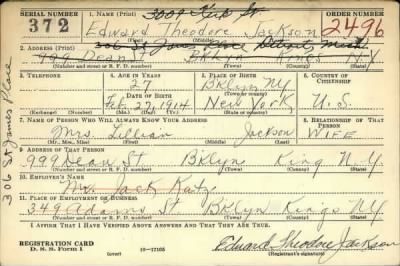 SERIAL NUMBER
1. NAME (Print)
ORDER NUMBER
372
Edward Theodore Jackson
2496
(First) (Middle) (Last)
2. ADDRESS (Print)
306 St James Place
999 Dean St Bklyn Kings N.Y.
(Number and street or R. F. D. number) (Town) (County) (State)
3. TELEPHONE
4. AGE IN YEARS
27
5. PLACE OF BIRTH
Bklyn NY
6. COUNTRY OF CITIZENSHIP
DATE OF BIRTH
Feb. 27, 1914
New York
U.S.
(Exchange) (Number) (Mo.) (Day) (Yr.) (State or country)
7. NAME OF PERSON WHO WILL ALWAYS KNOW YOUR ADDRESS
8. RELATIONSHIP OF THAT PERSON
Mrs. Lillian Jackson Wife
(Mr., Mrs., Miss) (First) (Middle) (Last)
9. ADDRESS OF THAT PERSON
999 Dean St Bklyn King N.Y.
(Number and street or R. F. D. number) (Town) (County) (State)
10. EMPLOYER'S NAME
Mr. Jack Katz
11. PLACE OF EMPLOYMENT OR BUSINESS
349 Adams St Bklyn Kings NY
(Number and street or R. F. D. number) (Town) (County) (State)
I AFFIRM THAT I HAVE VERIFIED ABOVE ANSWERS AND THAT THEY ARE TRUE.
REGISTRATION CARD
D. S. S. FORM 1
16—17105
(over)
Edward Theodore Jackson
(Registrant's signature)
306 St James Place